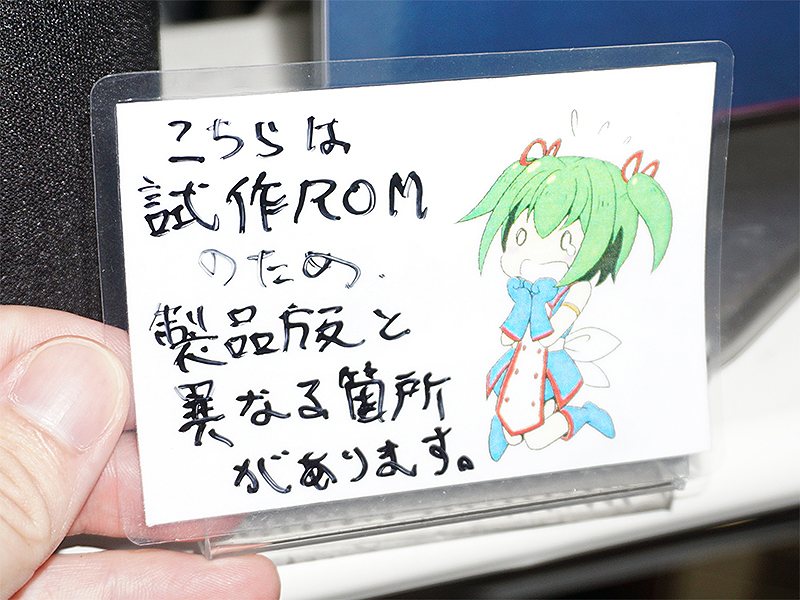 こちらは
試作ROM
のため
製品版と
異なる箇所
があります。